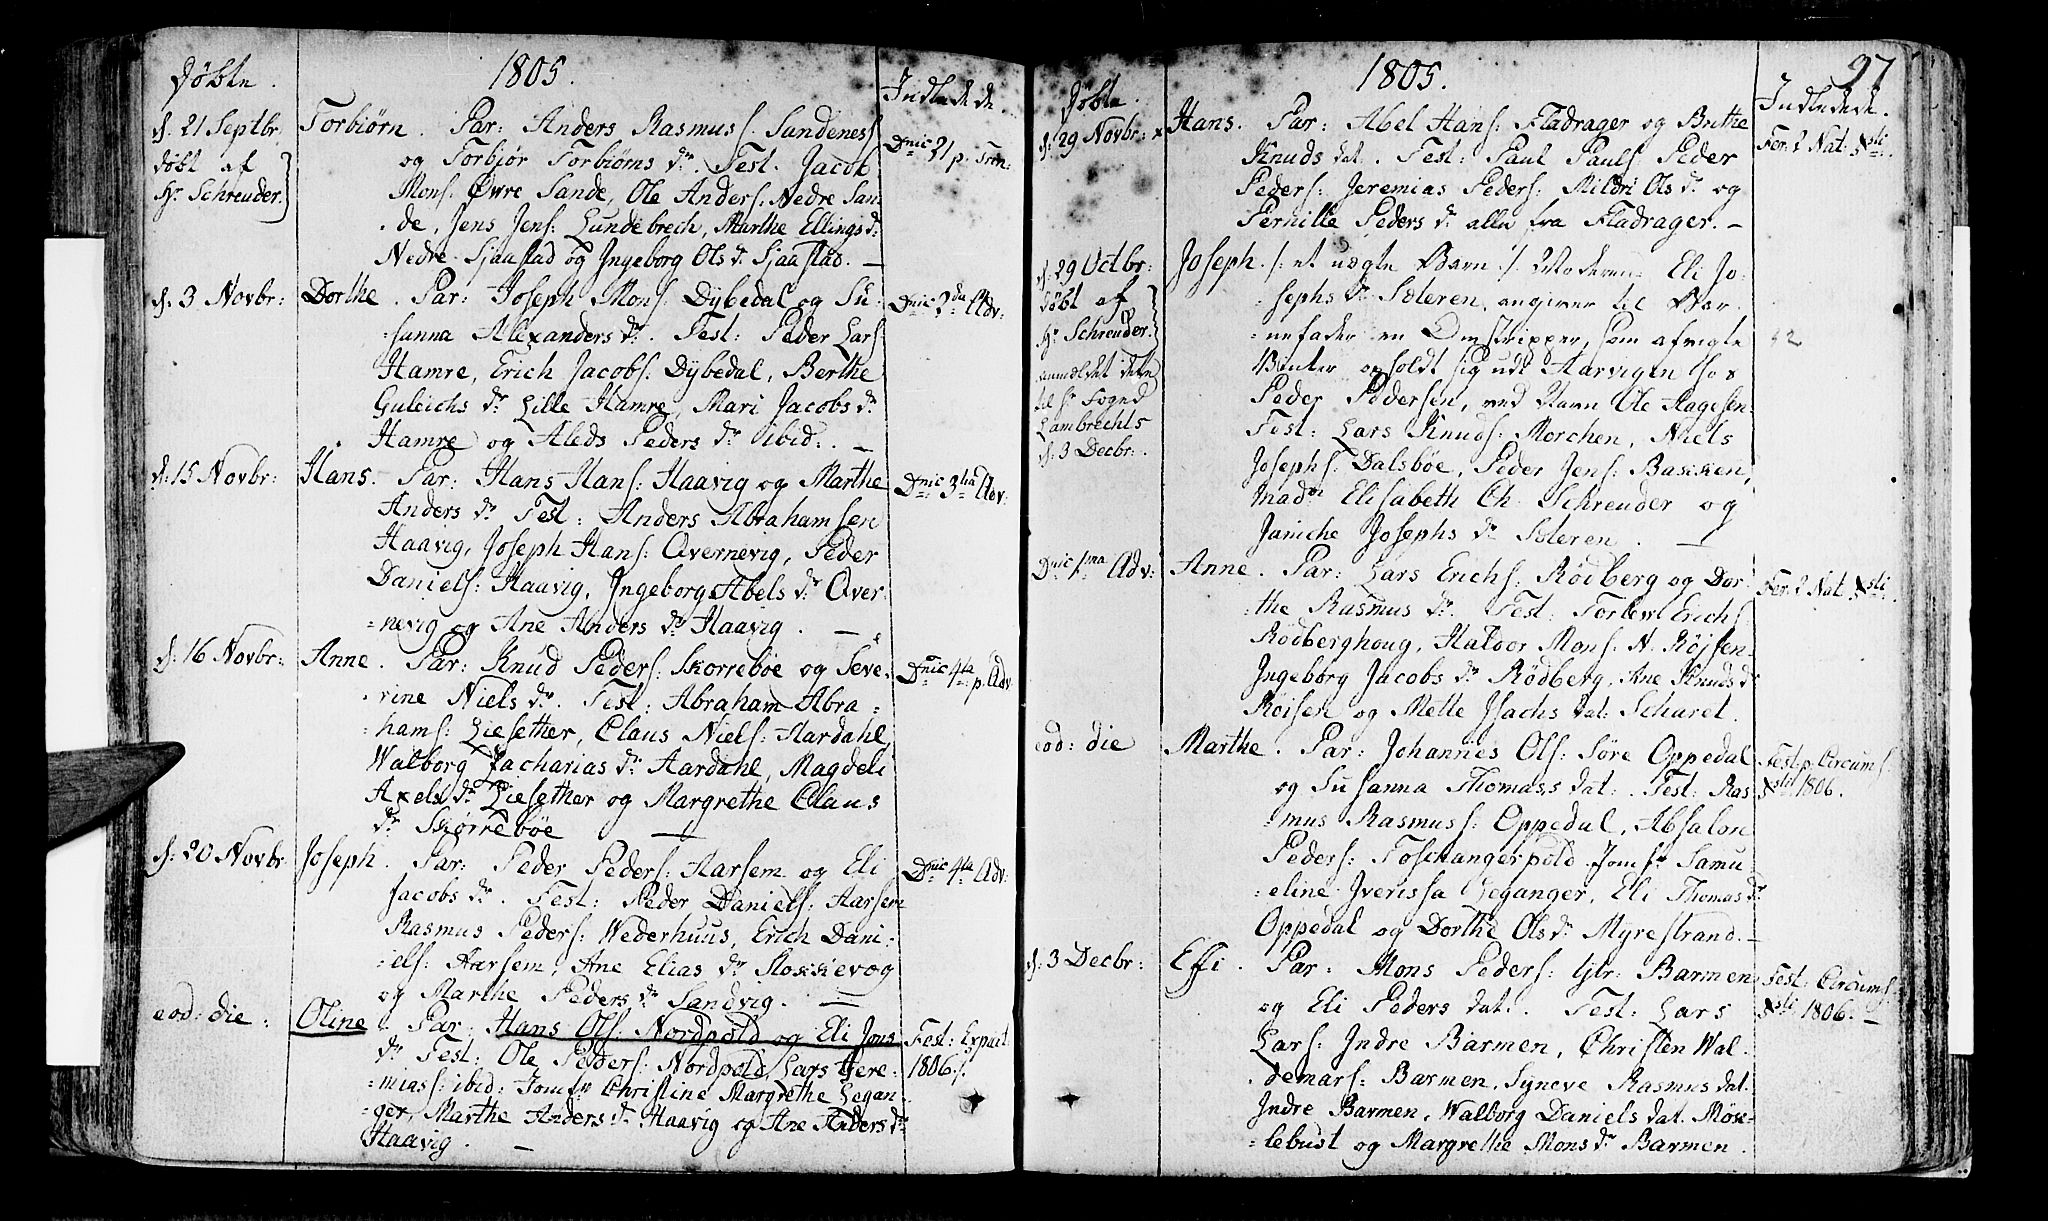 Døbte.
1805.
Indledede
d: 21 Septbr.
døbt af
Hr Schreuder.
Torbiørn. Par: Anders Rasmuss. Sandenes
og Torbjør Torbiørns dr. Test. Jacob
Mons: Øvre Sande, Ole Anders. Nedre San-
de, Jens Jens: Lundebrech, Marthe Ellings dr
Nedre Sjaastad og Ingeborg Ols dr Sjaastad. —
Dnic 21 p. Trin:
d: 3 Novbr:
Dorthe. Par: Joseph Mons. Dybedal og Su-
sanna Alexanders dr. Test: Peder Lars:
Hamre, Erich Jacobs: Dybedal, Berthe
Guleichs dr Lille Hamre, Mari Jacobs dr
Hamre og Aleds Peders dr ibid: —
Dnic 2da Adv:
d: 15 Novbr:
Hans. Par: Hans Hans: Haavig og Marthe
Anders dr Test: Anders Abrahamsen
Haavig, Joseph Hans: Qvernevig, Peder
Daniels: Haavig, Ingeborg Abels dr Qver-
nevig og Ane Anders dr Haavig. —
Dnic 3tia Adv:
d: 16 Novbr:
Anne. Par: Knud Peders: Skorrebøe og Seve-
rine Niels dr. Test: Abraham Abra-
hams: Liesether, Claus Niels: Aardahl
Walborg Zacharias dr Aardahl, Magdeli
Axels dr Liesether og Margrethe Claus
dr Skorrebøe —
Dnic 4ta p. Adv
d: 20 Novbr
Joseph. Par: Peder Peders: Aarsem og Eli
Jacobs dr. Test: Peder Daniels: Aarsem
Rasmus Peders: Wederhuus, Erich Dani-
els: Aarsem, Ane Elias dr Kokkevog
og Marthe Peders dr Sandvig. —
Dnic 4ta Adv:
eod: die:
Oline. Par: Hans Ols: Nordpold og Eli Jons
dr Test: Ole Peders: Nordpold, Lars Jere-
mias: ibid: Jomfr Christine Margrethe Legan-
ger, Marthe Anders dr Haavig og Ane Anders dr
Haavig. —
Fest:
1806.
97
Døbte.
1805.
Indledede.
d: 29 Novbr:
Hans. Par: Abel Hans: Fladrager og Brithe
Knuds dat. Test: Paul Pauls: Peder
Peders: Jeremias Peders: Mildri Ols dr og
Pernille Peders dr alle fra Fladrager. —
Fer. 2 Nat: Xsti.
d: 29 Octbr:
døbt af
Hr Schreuder.
anmeldet dette
til Hr Foged
Lambrechts
d: 3 Decbr:
Joseph. /: et uægte Barn :/ Moderen: Eli Jo-
sephs dr Isteren, angiver til Bar-
nefader en Omstripper, som afvigte
Vinter opholdt sig udi Aarvigen hos
Peder Pedersen, ved Navn Ole Aagesen.
Test: Lars Knuds: Morchen, Niels
Josephs: Dalsbøe, Peder Jens: Bakken,
Madme Elisabeth Ch: Schreuder og
Janiche Josephs dr Isteren. —
Dnic 1ma Adv:
Anne. Par: Lars Erichs: Rødberg og Dor-
the Rasmus dr. Test: Torlevl Erichs
Rødberghoug, Halvor Mons: N. Røjsen
Ingeborg Jacobs dr Rødberg, Ane Knuds dr
Røisen og Mette Isachs dat: Scharet.
Fer. 2 Nat. Xsti.
eod: die
Marthe. Par: Johannes Ols: Søre Oppedal
og Susanna Thomass dat: Test: Ras
mus Rasmuss: Oppedal, Absalon
Peders: Toschangerpold. Jomfr Samu
eline Iverissa Leganger, Eli Thomas dr
Oppedal og Dorthe Ols dr Myrestrand. —
Fest p. Circums:
Xsti 1806.
d: 3 Decbr:
Effi. Par: Mons Peders: Ytr: Barmen
og Eli Peders dat. Test: Lars
Lars: Indre Barmen, Christen Wal-
demars: Barmen, Syneve Rasmus dat.
Indre Barmen, Walborg Daniels dat. Møse-
lebust og Margrethe Mons dr Barmen.
Fest. Circums
Xsti 1806. —